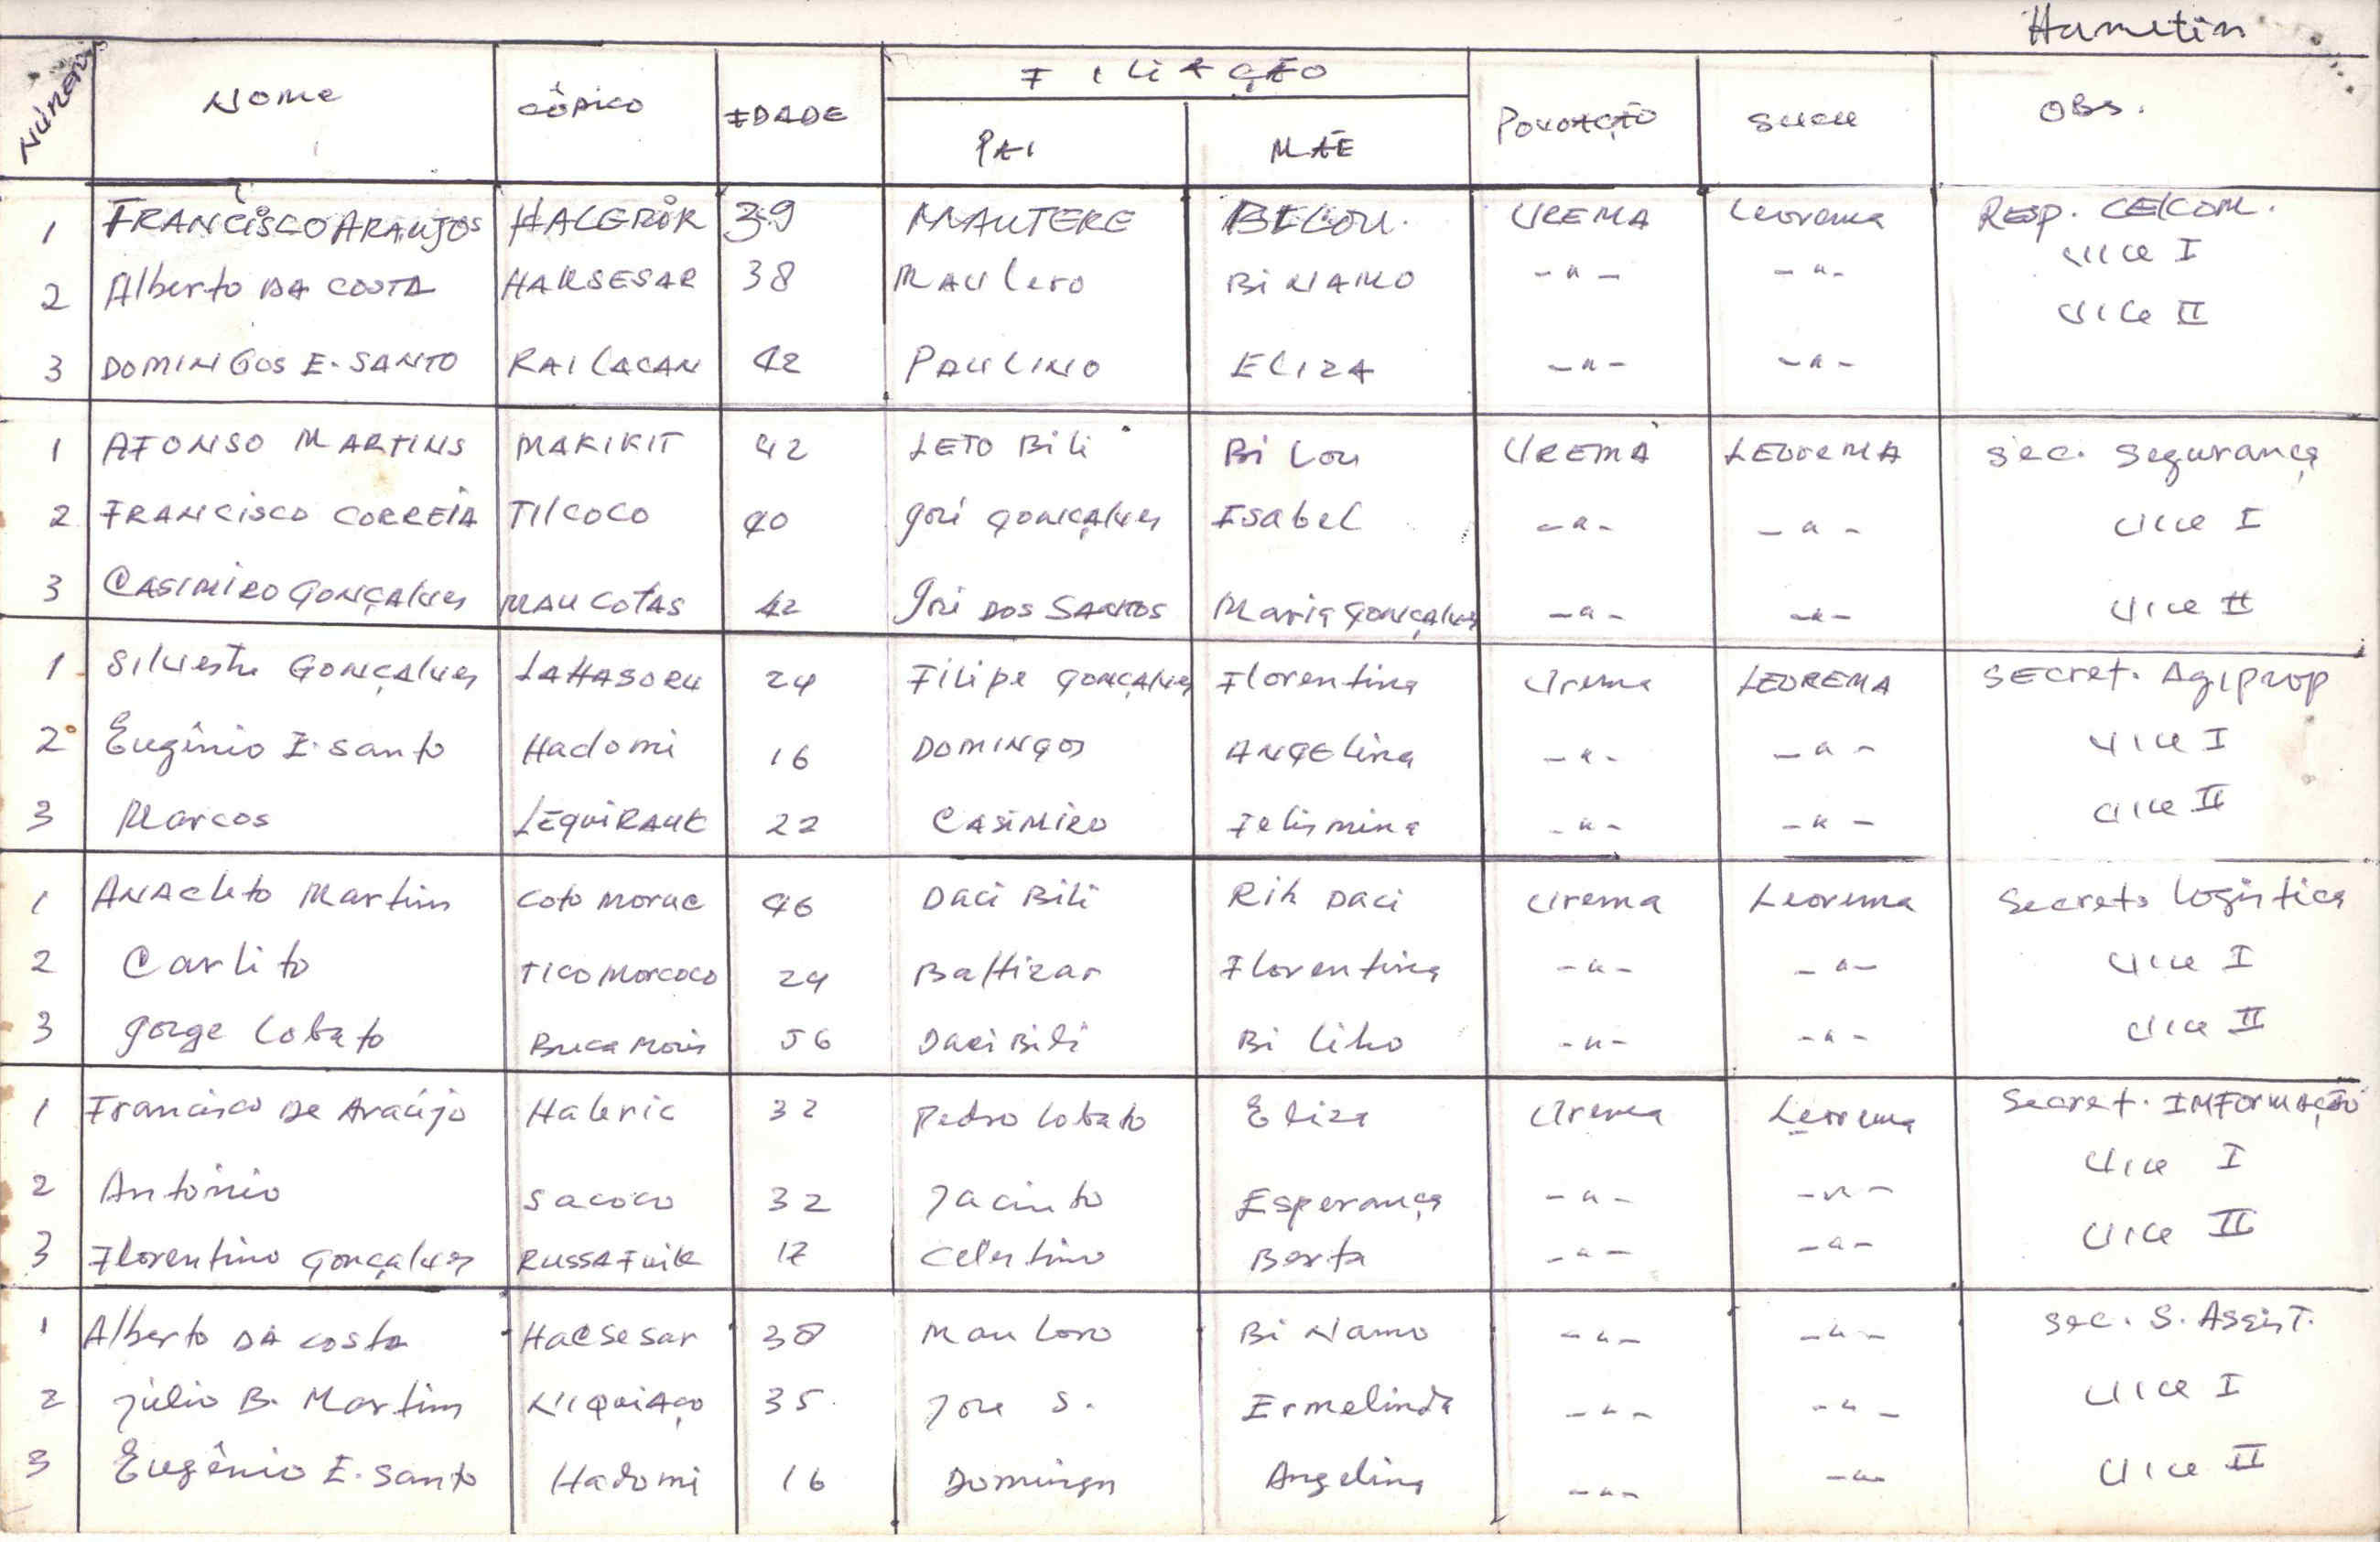 Hametin
Número NOME CÓDICO IDADE FILIAÇÃO POVOAÇÃO SUCU OBS.
PAI MÃE
1 FRANCISCO ARAUJOS HALERIK 39 MAUTERE BILOU. UREMA Leorema RESP. CELCOM.
2 Alberto DA COSTA HAKSESAR 38 MAU Lero Bi NAMO -"- -"- VICE I
3 DOMINGOS E. SANTO RAILACAN 42 PAULINO ELIZA -"- -"- VICE II
1 AFONSO MARTINS MAKIKIT 42 LETO Bili Bi Lou UREMA LEOREMA Sec. Segurança
2 FRANCISCO CORREIA TILCOCO 40 José Gonçalves Isabel -"- -"- Vice I
3 CASIMIRO GONÇALVES MAU COTAS 42 José DOS SANTOS Maria Gonçalves -"- -"- Vice II
1 Silvestre GONÇALVES LAHASORU 24 Filipe Gonçalves Florentina Urema LEOREMA SECret. Agiprop
2º Eugênio E. santo Hadomi 16 DOMINGOS ANGElina -"- -"- Vice I
3 Marcos LEQUIRAUK 22 CASIMIRO Felismina -"- -"- Vice II
1 ANAcleto Martins Coto morae 46 Daci Bili Rik Daci Urema Leorema Secret. Logística
2 Carlito TICO Morcoco 24 Baltizar Florentina -"- -"- Vice I
3 Jorge Lobato Bucamoris 56 Daci Bili Bi Liko -"- -"- Vice II
1 Francisco De Araújo Haleric 32 Pedro Lobato Eliza Urema Leorema Secret. INFORMAÇÃO
2 António Sacoco 32 Jacinto Esperança -"- -"- Vice I
3 Florentino Gonçalves RUSSAFuik 17 Celestino Berta -"- -"- Vice II
1 Alberto DA Costa Hacsesar 38 Mau Loro Bi Namo -"- -"- Sec. S. Assist.
2 Júlio B. Martins 35 José S. Ermelinda -"- -"- Vice I
3 Eugênio E. Santo Hadomi 16 Domingos Angelina -"- -"- Vice II